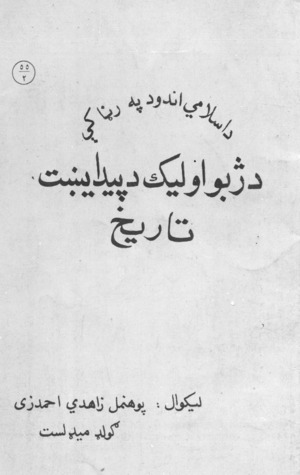 ۵۵
۲
د اسلامي اندود په رڼا کې
د ژبو او ليك د پيدايښت
تاريخ
ليکوال : پوهنمل زاهدي احمدزی
ګولډ ميډلست